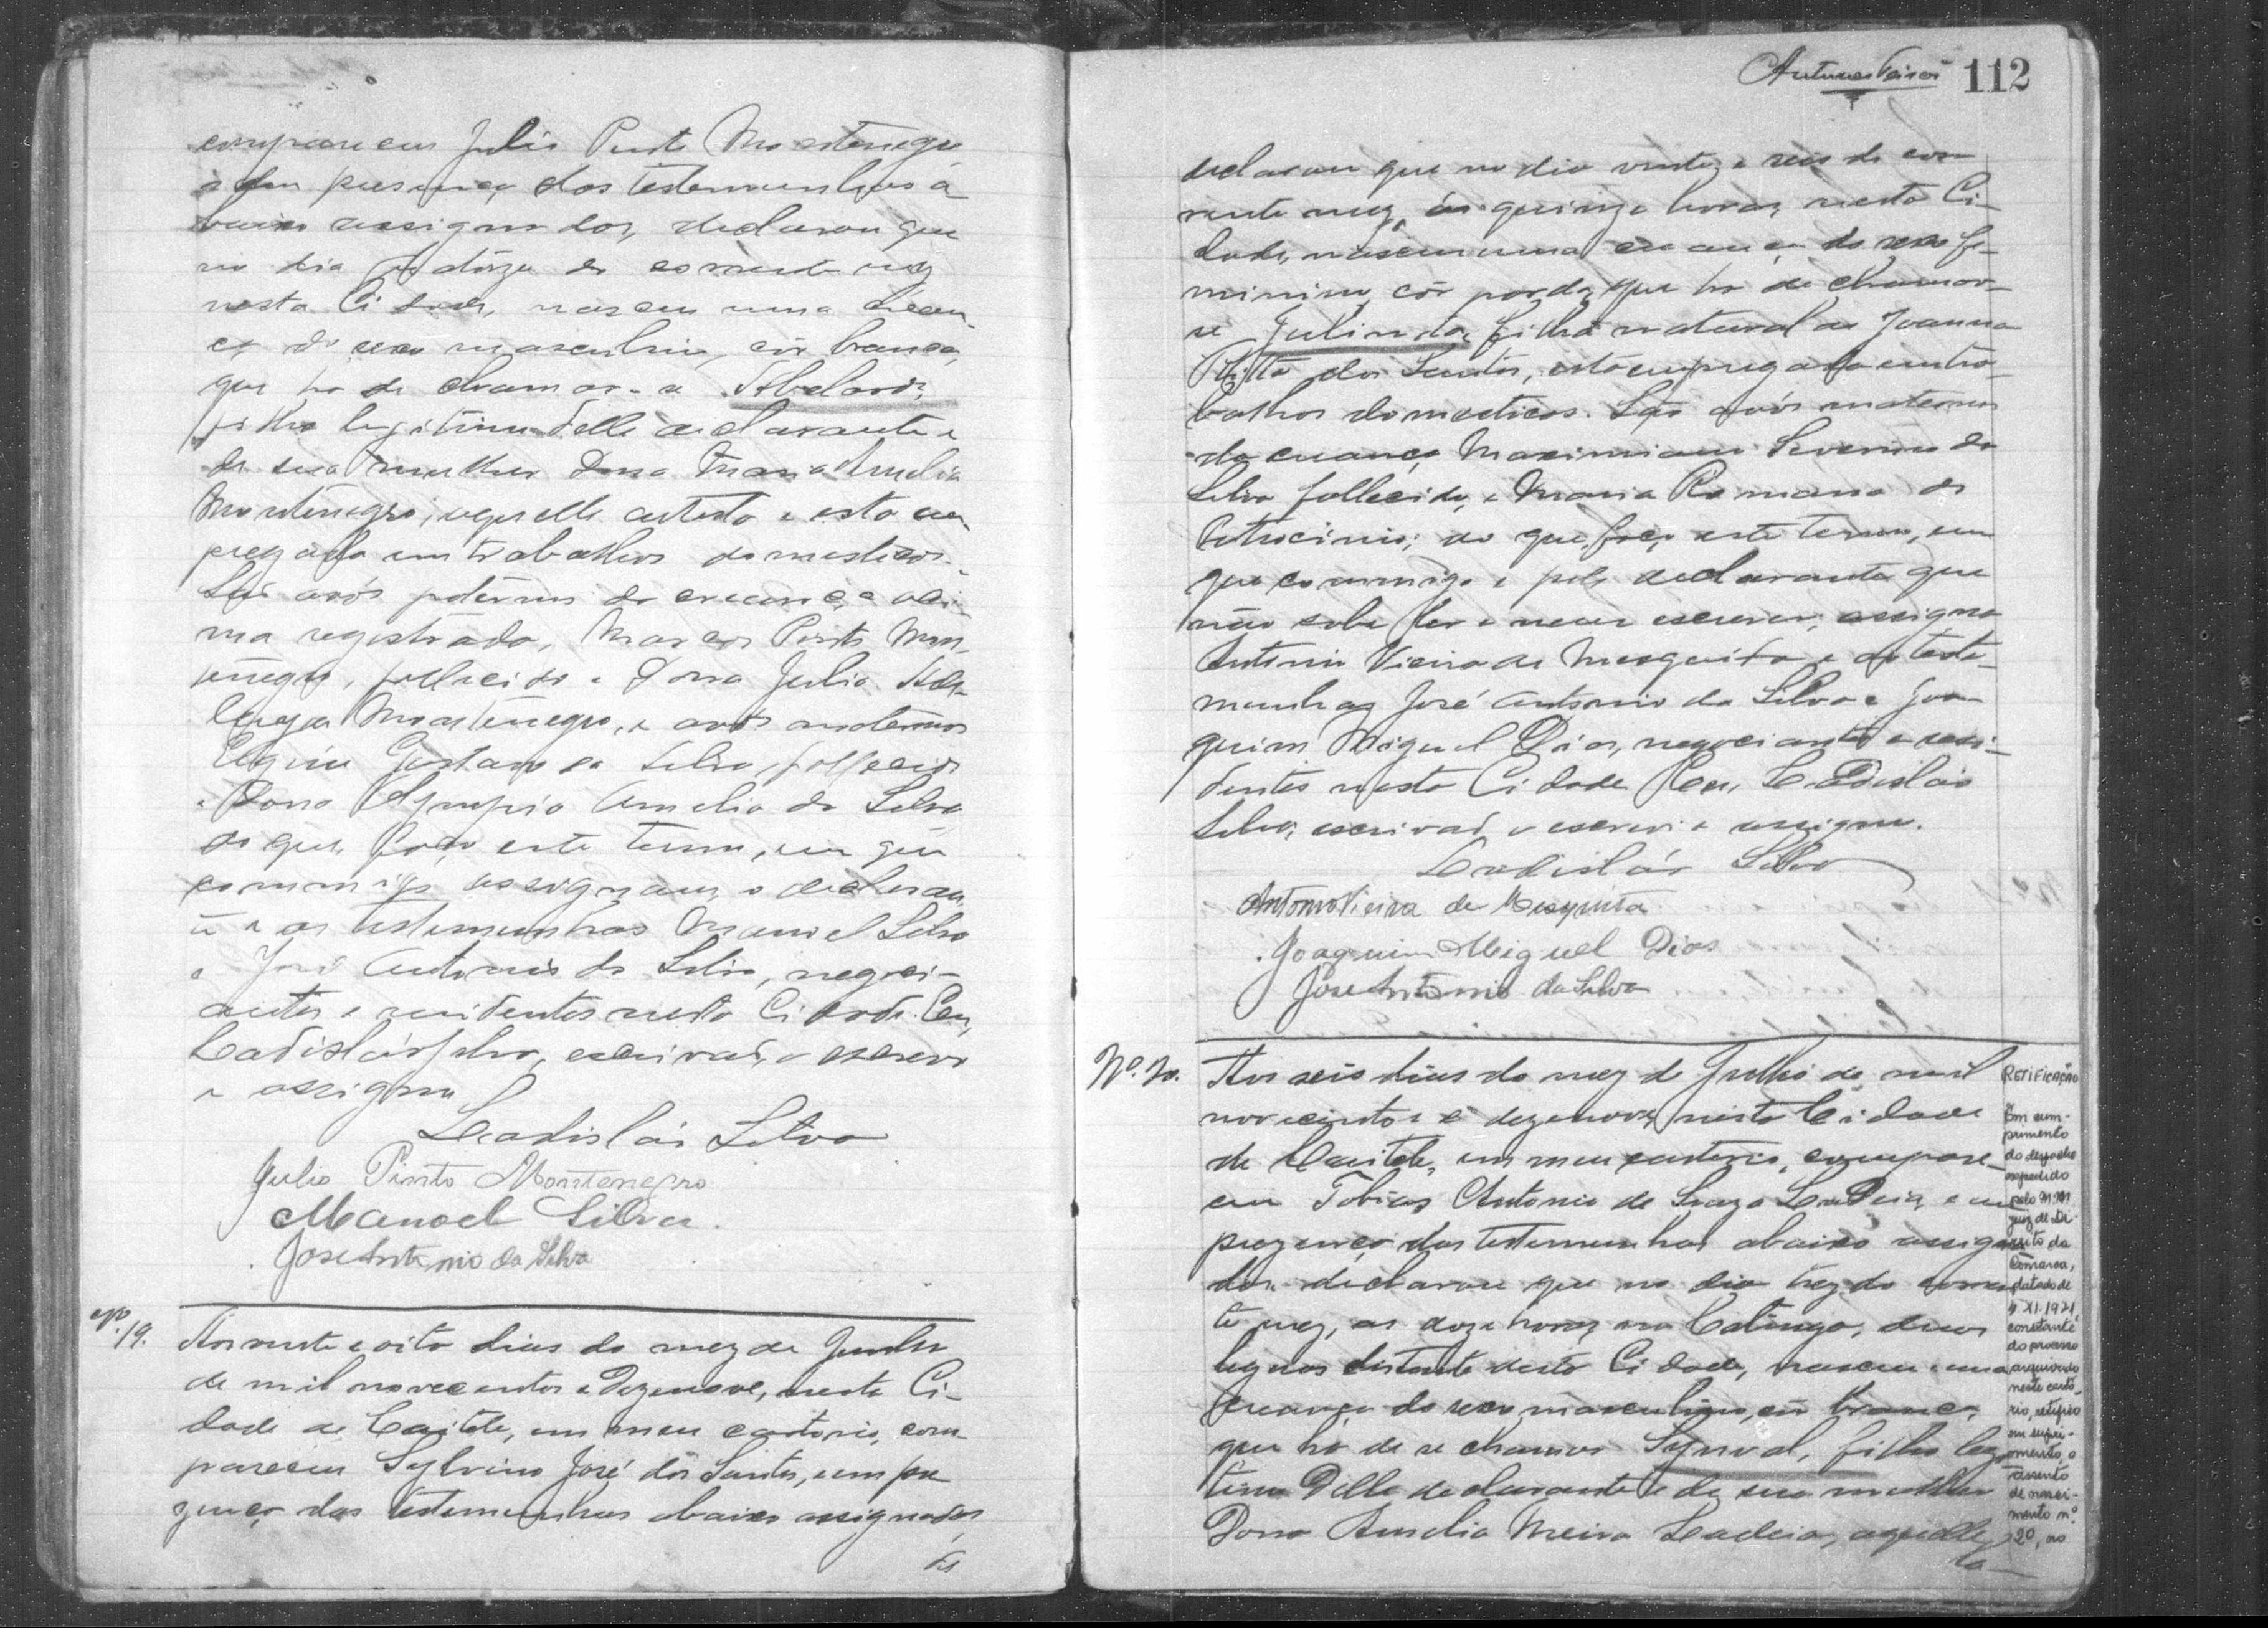 compareceu Julio Pinto Montenegro
e em presença das testemunhas a
baixo assignadas, declarou que
no dia quatorze do corrente mez
nesta Cidade, nasceu uma crean-
ça do sexo masculino, côr branca,
que ha de chamar-se Abelardo,
filho legitimo delle declarante e
de sua mulher Dona Maria Amelia
Montenegro, aquelle artista e esta em-
pregada em trabalhos domesticos.
São avós paternos da creança aci-
ma registrada, Marcos Pinto Mon-
tenegro, fallecido e Dona Julia
Montenegro, e avós maternos
Gustavo da Silva, fallecido
e Dona Olympia Amelia da Silva
do que, faço este termo, em que
commigo assignam, o declaran-
te e as testemunhas Manoel Silva
e José Antonio da Silva, negoci-
antes e residentes nesta Cidade. Eu,
Ladisláo Silva, escrivão, o escrevi
e assigno
Ladisláo Silva
Julio Pinto Montenegro
Manoel Silva.
José Antonio da Silva
Nº. 19. Aos vinte e oito dias do mez de Junho
de mil novecentos e dezenove, nesta Ci-
dade de Caiteté, em meu cartorio, com-
pareceu Sylvino José dos Santos, e em pre
zença das testemunhas abaixo assignadas,
Antunes 112
declarou que no dia vinte e seis do cor-
rente mez, ás quinze horas, nesta Ci-
dade, nasceu uma creança do sexo fe-
minino, côr parda, que ha de chamar-
se Julinda, filha natural de Joanna
dos Santos, esta empregada em tra-
balhos domesticos. São avós maternos
da creança Maximiano Severino da
Silva fallecido, e Maria Romana do
Patrocinio; do que, faço este termo, em
que commigo e pelo declarante que
não sabe ler e nem escrever, assigna
Antonio Vieira de Mesquita e as teste-
munhas José Antonio da Silva e Joa-
quim Miguel Dias, negociantes e resi-
dentes nesta Cidade. Eu, Ladisláo
Silva, escrivão, o escrevi e assigno.
Ladisláo Silva
Antonio Vieira de Mesquita
Joaquim Miguel Dias
José Antonio da Silva
Nº. 20. Aos seis dias do mez de Julho de mil
novecentos e dezenove, nesta Cidade
de Caiteté, em meu cartorio, compare-
ceu Tobias Antonio de Souza Ladeia, e em
prezença das testemunhas abaixo assigna
das declarou que no dia trez do corren
te mez, as doze horas, na Catinga, duas
leguas distante desta Cidade, nasceu uma
creança do sexo masculino, côr branca,
que ha de se chamar Synval, filho legi
timo delle declarante e de sua mulher
Dona Amelia Meira Ladeia, aquelle
RETIFICAÇÃO
Em cum-
primento
do despacho
expedido
pelo M.M.
Juiz de Di-
reito da
Comarca,
datado de
4.XI.1971,
constante
do processo
arquivado
neste cartó-
rio, retifico
o
assento
de nasci-
mento nº
20, ao